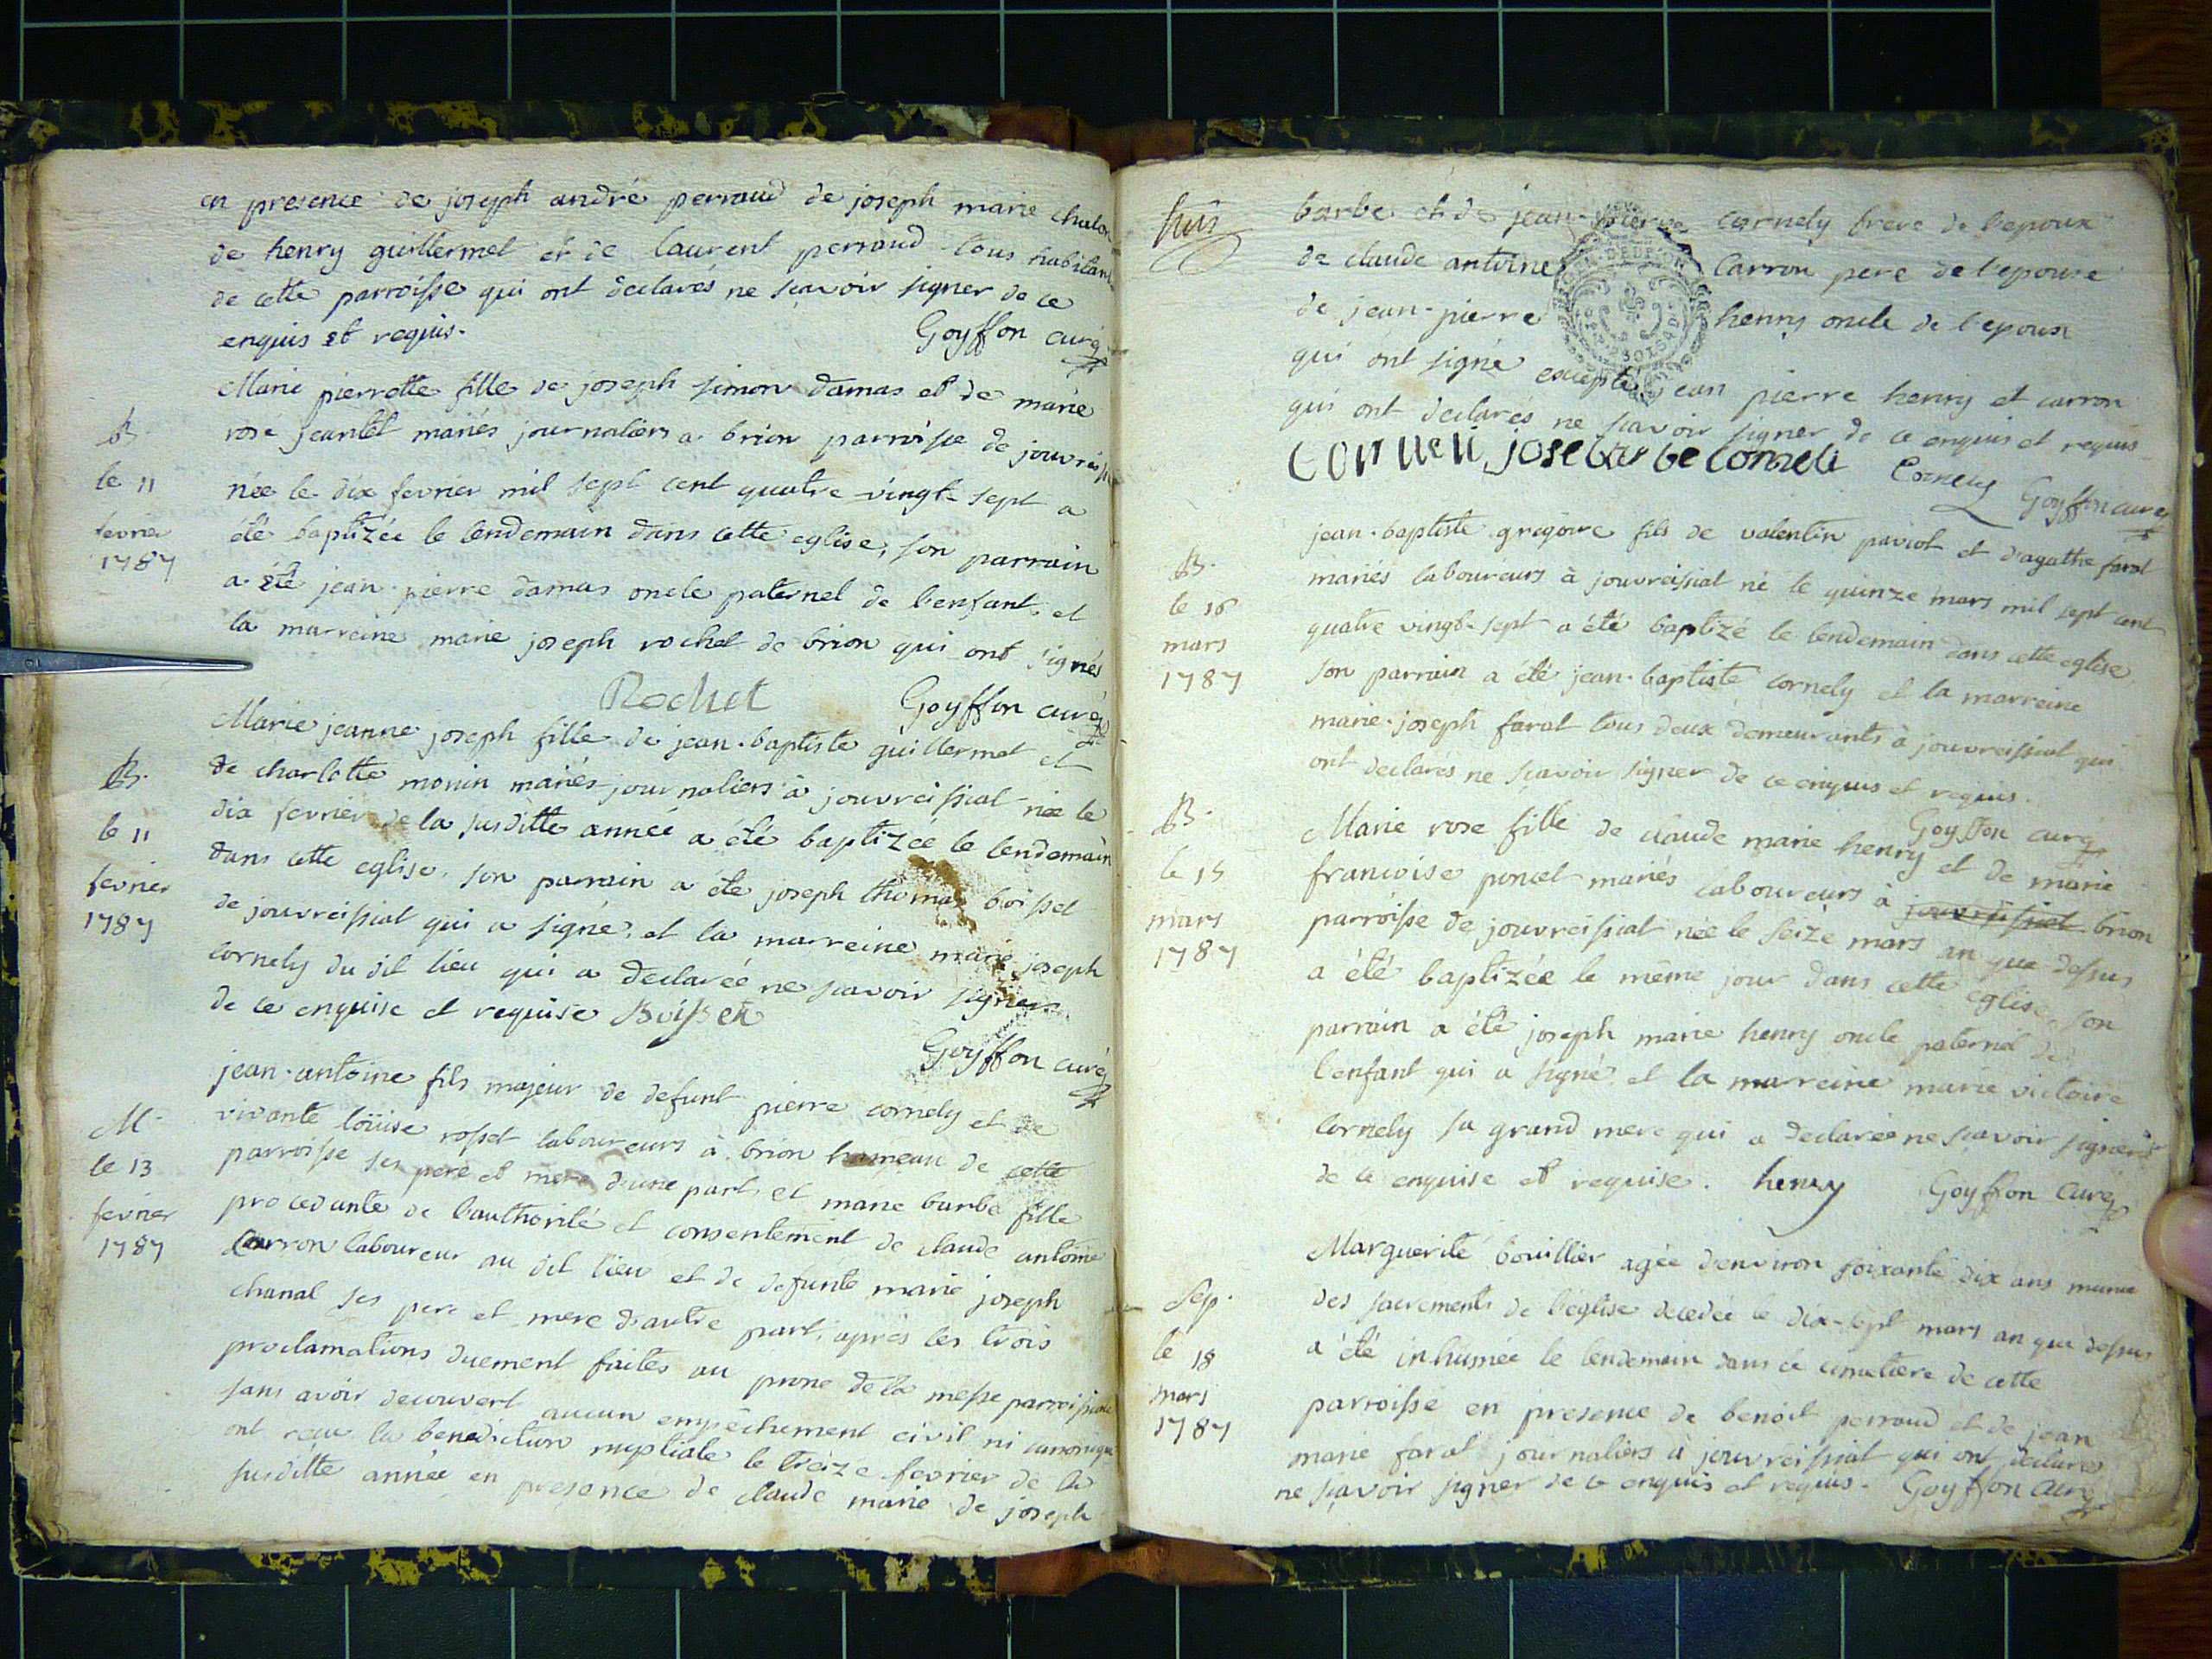 en presence de joseph andré perraud de joseph marie chalon
de henry guillermet et de laurent perraud tous habitans
de cette parroisse qui ont declarés ne scavoir signer de ce
enquis et requis.
Goyffon curé
B.
le 11
fevrier
1787
Marie pierrette fille de joseph simon damas et de marie
rose jeantet mariés journaliers a brion parroisse de
née le dix fevrier mil sept cent quatre vingt sept a
été baptizée le lendemain dans cette eglise, son parrain
a été jean pierre damas oncle paternel de l'enfant, et
la marreine marie joseph rochet de brion qui ont signés
Rochet
Goyffon curé
B.
le 11
fevrier
1787
Marie jeanne joseph fille de jean-baptiste guillermet et
de charlotte monin mariés journaliers à jouvreissiat née le
dix fevrier de la susditte année a été baptizée le lendemain
dans cette eglise, son parrain a été joseph thomas boisset
de jouvreissiat qui a signé, et la marreine marie joseph
cornely du dit lieu qui a declarée ne scavoir signer
de ce enquise et requise Boisset
Goyffon curé
M.
le 13
fevrier
1787
jean-antoine fils majeur de defunt pierre cornely et de
vivante loüise rosset laboureurs à brion hameau de cette
parroisse ses pere et mere d'une part, et marie barbe fille
procedante de l'authorité et consentement de claude antoine
Carron laboureur au dit lieu et de defunte marie joseph
chanal ses pere et mere d'autre part, après les trois
proclamations duement faites au prone de la messe parroissiale
sans avoir decouvert aucun empêchement civil ni canonique
ont recu la benediction nuptiale le treize fevrier de la
susditte année en presence de claude marie de joseph
huis
barbe et de jean-pierre cornely frere de l'epoux
de claude antoine Carron pere de l'epouse
de jean-pierre henry oncle de l'epoux
qui ont signé excepté jean pierre henry et carron
qui ont declarés ne scavoir signer de ce enquis et requis
Corneli jose barbe Corneli Cornely Goyffon curé
B.
le 16
mars
1787
jean-baptiste gregoire fils de valentin paviot et d'agathe farat
mariés laboureurs à jouvreissiat né le quinze mars mil sept cent
quatre vingt-sept a été baptizé le lendemain dans cette eglise
son parrain a été jean-baptiste cornely et la marreine
marie-joseph farat tous deux demeurants à jouvreissiat qui
ont declarés ne scavoir signer de ce enquis et requis.
Goyffon curé
B.
le 15
mars
1787
Marie rose fille de claude marie henry et de marie
francoise poncet mariés laboureurs à jouvreissiat brion
parroisse de jouvreissiat née le seize mars an que dessus
a été baptizée le même jour dans cette église, son
parrain a été joseph marie henry oncle paternel de
l'enfant qui a signé et la mareine marie victoire
Cornely sa grand mere qui a declarée ne scavoir signer
de ce enquise et requise. henry Goyffon Curé
Sep.
le 18
mars
1787
Marguerite bouillier agée d'environ soixante dix ans munie
des sacrements de l'église decedée le dix-sept mars an que dessus
a été inhumée le lendemain dans le cimetiere de cette
parroisse en presence de benoit perraud et de jean
marie farat journaliers à jouvreissiat qui ont declarés
ne scavoir signer de ce enquis et requis. Goyffon curé